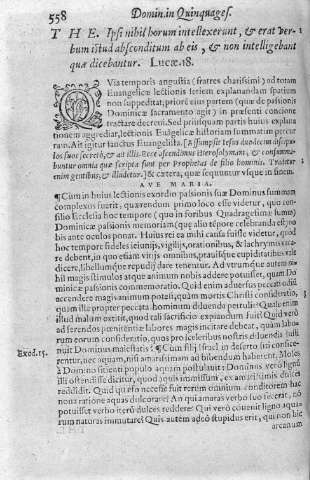 558 Domin. in Quinquages.
T H E. Ipsi nihil horum intellexerunt, & erat ver-
bum istud absconditum ab eis, & non intelligebant
quæ dicebantur. Lucæ. 18.
QVia temporis angustia (fratres charissimi) ad totam
Euangelicæ lectionis seriem explanandam spatium
non suppeditat; priori eius partem (quæ de passionis
Dominicæ sacramento agit) in præsenti concione
tractare decreui. Sed priusquam partis huius explana
tionem aggrediar, lectionis Euāgelicæ historiam summatim percur
ram. Ait igitur sanctus Euangelista. [Assumpsit Iesus duodecim aposto-
los suos secretò, & ait illis. Ecce ascendimus Hierosolymam, & consumma-
buntur omnia quæ scripta sunt per Prophetas de filio hominis. Tradetur
enim gentibus, & illudetur,] & cætera, quæ sequuntur vsque in finem.
AVE MARIA.
¶Cum in huius lectionis exordio passionis suæ Dominus summam
complexus fuerit, quærendum primo loco esse videtur, quo con-
silio Ecclesia hoc tempore (quo in foribus Quadragesimæ sumus)
Dominicæ passionis memoriam (quæ alio tēpore celebranda est) no
bis ante oculos ponat. Huius rei ea mihi causa fuisse videtur, quòd
hoc tempore fideles ieiunijs, vigilijs, orationibus, & lachrymis vaca
re debent, in quo etiam vitijs omnibus, prauisque cupiditatibus vale
dicere, libellumque repudij dare tenentur. Ad vtrumque autem nul
lus magis stimulos atque animum nobis addere potuisset, quàm Do
minicæ passionis commemoratio. Quid enim aduersus peccati odiū
accendere magis animum potest, quàm mortis Christi consideratio,
quam ille propter peccata hominum diluenda pertulit? Quale enim
illud malum extitit, quod tali sacrificio expiandum fuit? Quid verò
ad ferendos pœnitentiæ labores magis incitare debeat, quàm labo-
rum eorum consideratio, quos pro sceleribus nostris diluendis susti
nuit Dominus maiestatis? ¶Cum filij Israel in deserto siti confice-
Exod. 15. rentur, nec aquam, nisi amarissimam ad bibendum haberent, Moses
à Domino sitienti populo aquam postulauit: Dominus verò lignū
illi ostendisse dicitur, quod aquis immissum, ex amaris illico dulces
reddidit. Quid quæso necesse fuit rerum omnium conditorem hac
noua ratione aquas dulcorare? An qui amaras verbo suo fecerat, nō
potuisset verbo iterū dulces reddere? Qui verò conuenit ligno aqua
rum naturas immutare? Quis autem adeò stupidus erit, qui non hic
arcanum